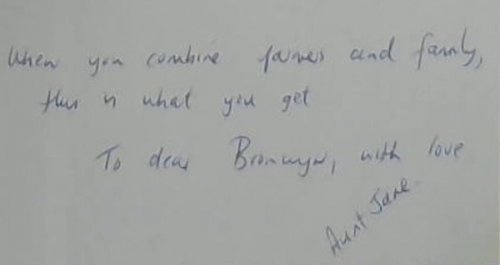 When you combine and family,
this is what you get
To dear Bronwyn, with love
Aunt Jane